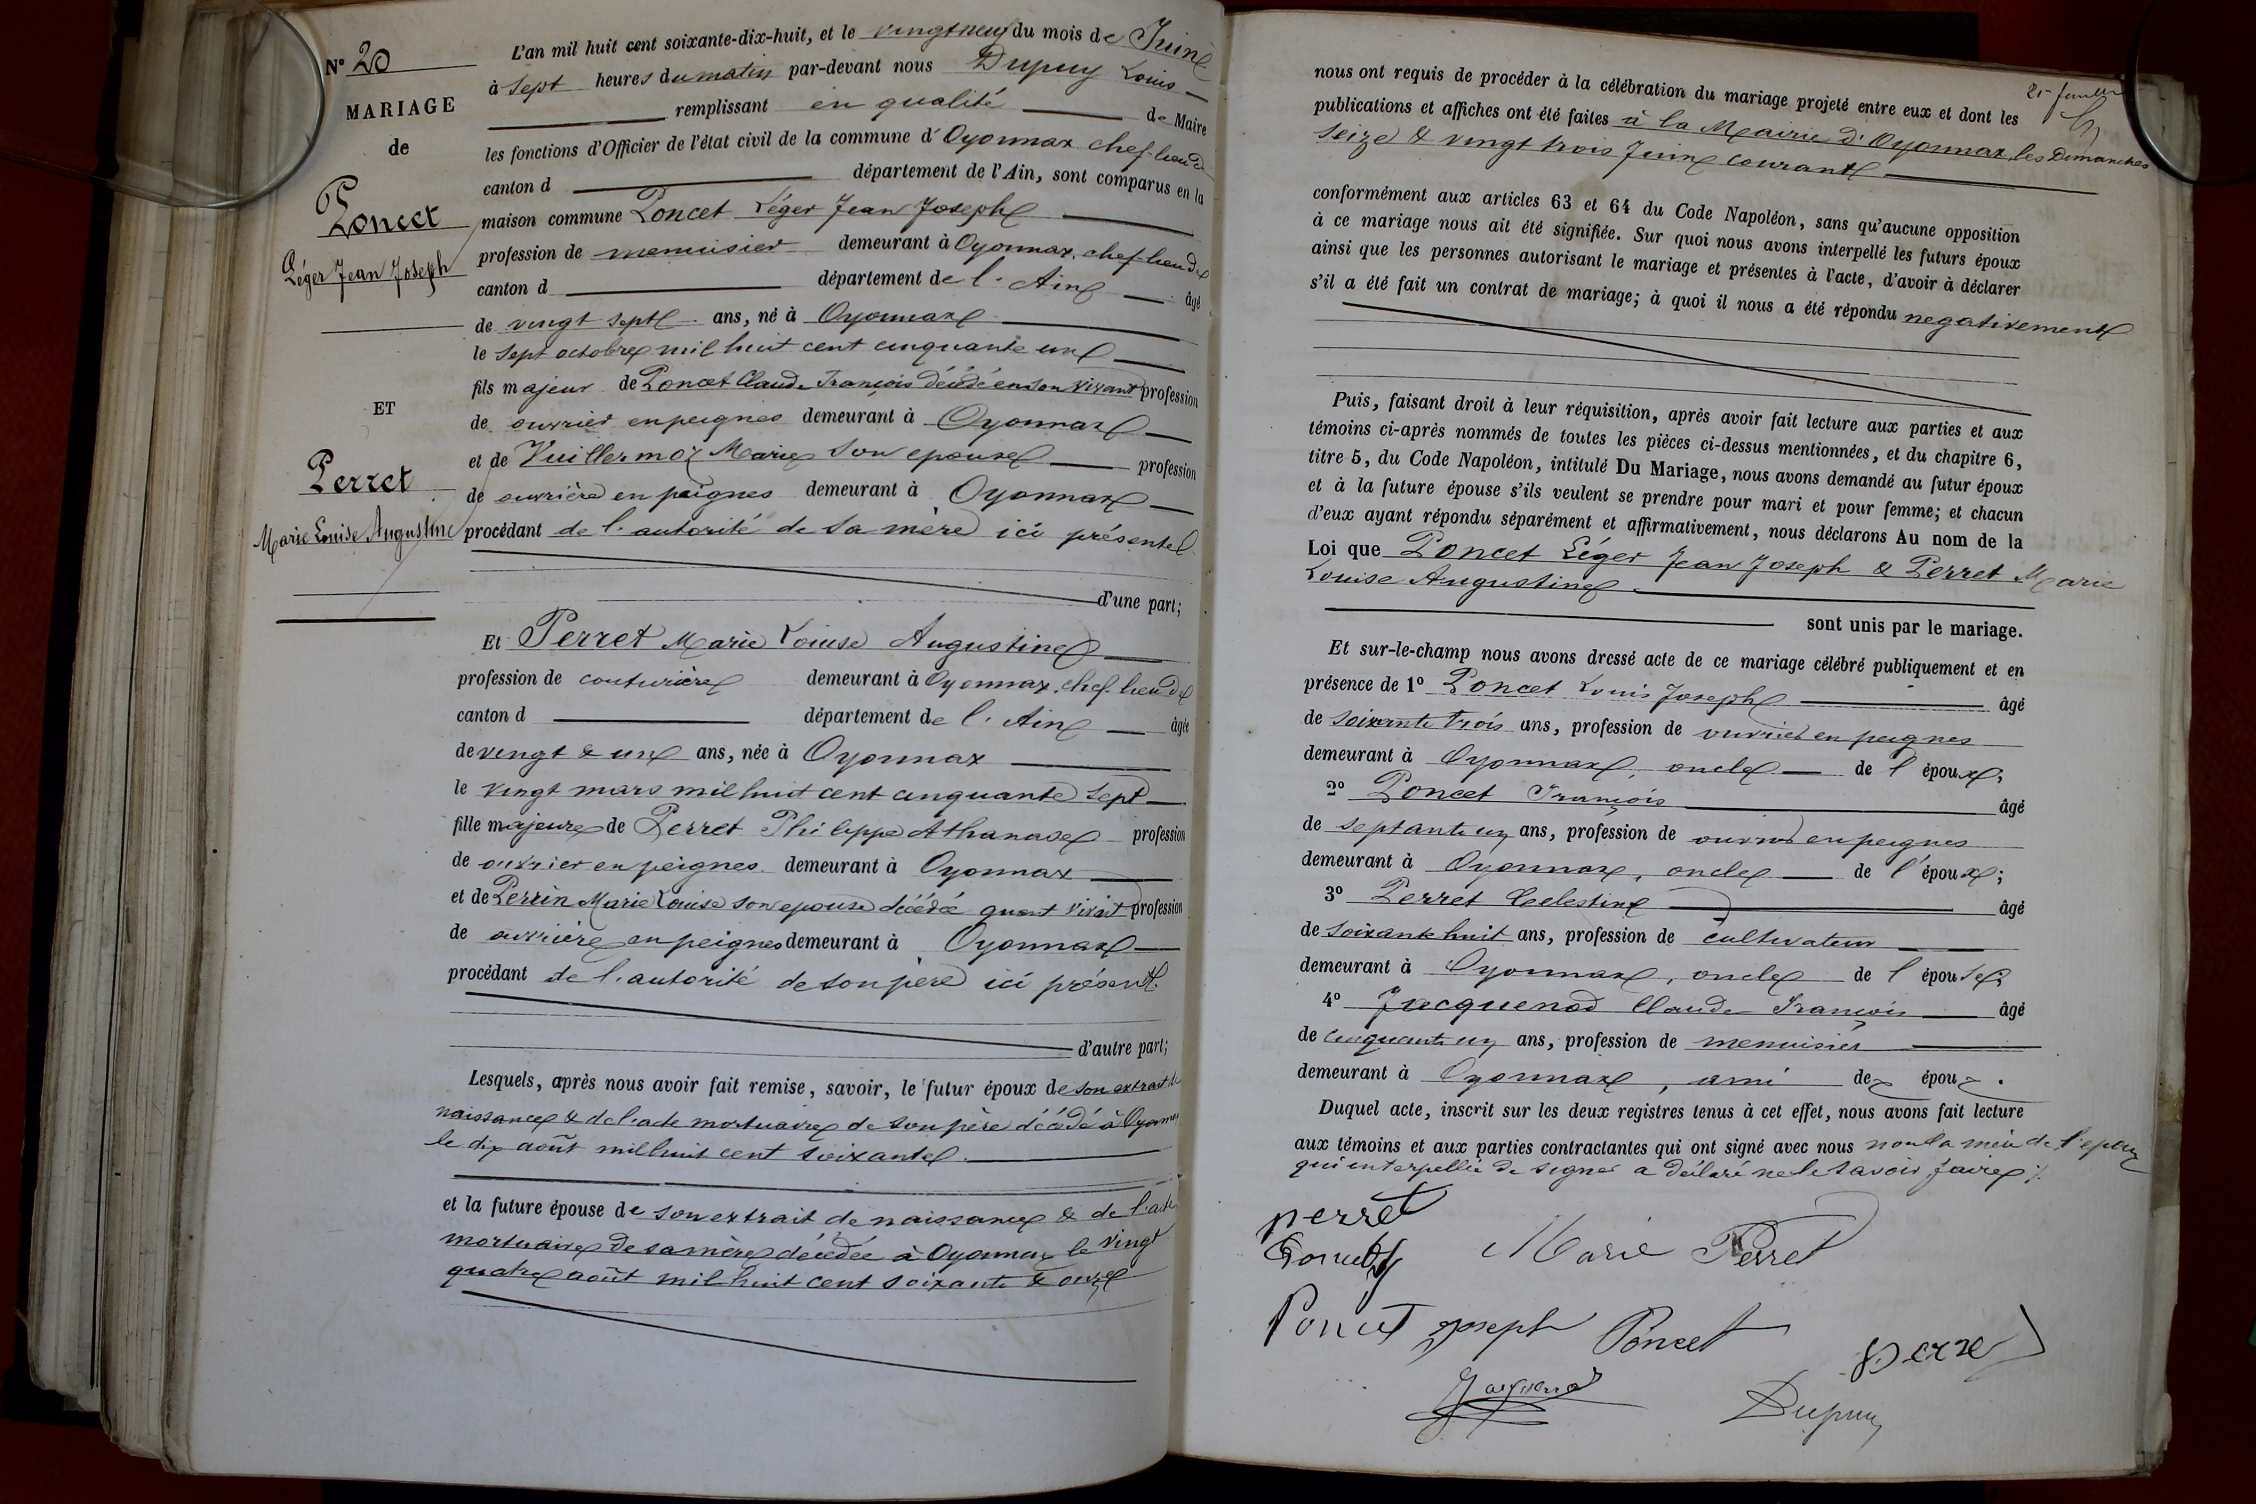 N° 20
MARIAGE
de
Poncet
Léger Jean Joseph
ET
Perret
Marie Louise Augustine
L'an mil huit cent soixante-dix-huit, et le vingt neuf du mois de Juin
à sept heures du matin par-devant nous Dupuy Louis
remplissant en qualité de Maire
les fonctions d'Officier de l'état civil de la commune d'Oyonnax chef-lieu de
canton d département de l'Ain, sont comparus en la
maison commune Poncet Léger Jean Joseph
profession de menuisier demeurant à Oyonnax, chef-lieu de
canton d département de l'Ain âgé
de vingt sept ans, né à Oyonnax
le sept octobre mil huit cent cinquante un
fils majeur de Poncet Claude François décédé en son vivant profession
de ouvrier en peignes demeurant à Oyonnax
et de Vuillermoz Marie son epouse profession
de ouvrière en peignes demeurant à Oyonnax
procédant de l'autorité de sa mère ici présente
d'une part;
Et Perret Marie Louise Augustine
profession de couturière demeurant à Oyonnax, chef-lieu de
canton d département de l'Ain âgée
de vingt & un ans, née à Oyonnax
le vingt mars mil huit cent cinquante sept
fille majeure de Perret Philippe Athanase profession
de ouvrier en peignes demeurant à Oyonnax
et de Perrin Marie Louise son epouse décédée quant vivait profession
de ouvrière en peignes demeurant à Oyonnax
procédant de l'autorité de son père ici présent.
d'autre part;
Lesquels, après nous avoir fait remise, savoir, le futur époux de son extrait de
naissance & de l'acte mortuaire de son père décédé à Oyonnax
le dix août mil huit cent soixante.
et la future épouse de son extrait de naissance & de l'acte
mortuaire de sa mère décédée à Oyonnax le vingt
quatre août mil huit cent soixante & onze
nous ont requis de procéder à la célébration du mariage projeté entre eux et dont les
publications et affiches ont été faites à la Mairie d'Oyonnax, les Dimanches
seize & vingt trois Juin courant
conformément aux articles 63 et 64 du Code Napoléon, sans qu'aucune opposition
à ce mariage nous ait été signifiée. Sur quoi nous avons interpellé les futurs époux
ainsi que les personnes autorisant le mariage et présentes à l'acte, d'avoir à déclarer
s'il a été fait un contrat de mariage; à quoi il nous a été répondu negativement
Puis, faisant droit à leur réquisition, après avoir fait lecture aux parties et aux
témoins ci-après nommés de toutes les pièces ci-dessus mentionnées, et du chapitre 6,
titre 5, du Code Napoléon, intitulé Du Mariage, nous avons demandé au futur époux
et à la future épouse s'ils veulent se prendre pour mari et pour femme; et chacun
d'eux ayant répondu séparément et affirmativement, nous déclarons Au nom de la
Loi que Poncet Léger Jean Joseph & Perret Marie
Louise Augustine
sont unis par le mariage.
Et sur-le-champ nous avons dressé acte de ce mariage célébré publiquement et en
présence de 1° Poncet Louis Joseph âgé
de soixante trois ans, profession de ouvrier en peignes
demeurant à Oyonnax, oncle de l'époux;
2° Poncet François âgé
de septante un ans, profession de ouvrier en peignes
demeurant à Oyonnax, oncle de l'époux;
3° Perret Celestin âgé
de soixante huit ans, profession de cultivateur
demeurant à Oyonnax, oncle de l'épouse;
4° Jacquenod Claude François âgé
de cinquante un ans, profession de menuisier
demeurant à Oyonnax, ami des époux.
Duquel acte, inscrit sur les deux registres tenus à cet effet, nous avons fait lecture
aux témoins et aux parties contractantes qui ont signé avec nous non la mère de l'epoux
qui interpellée de signer a déclaré ne le savoir faire
perret
Marie Perret
Poncet Joseph Poncet
perret
Jacquenod
Dupuy